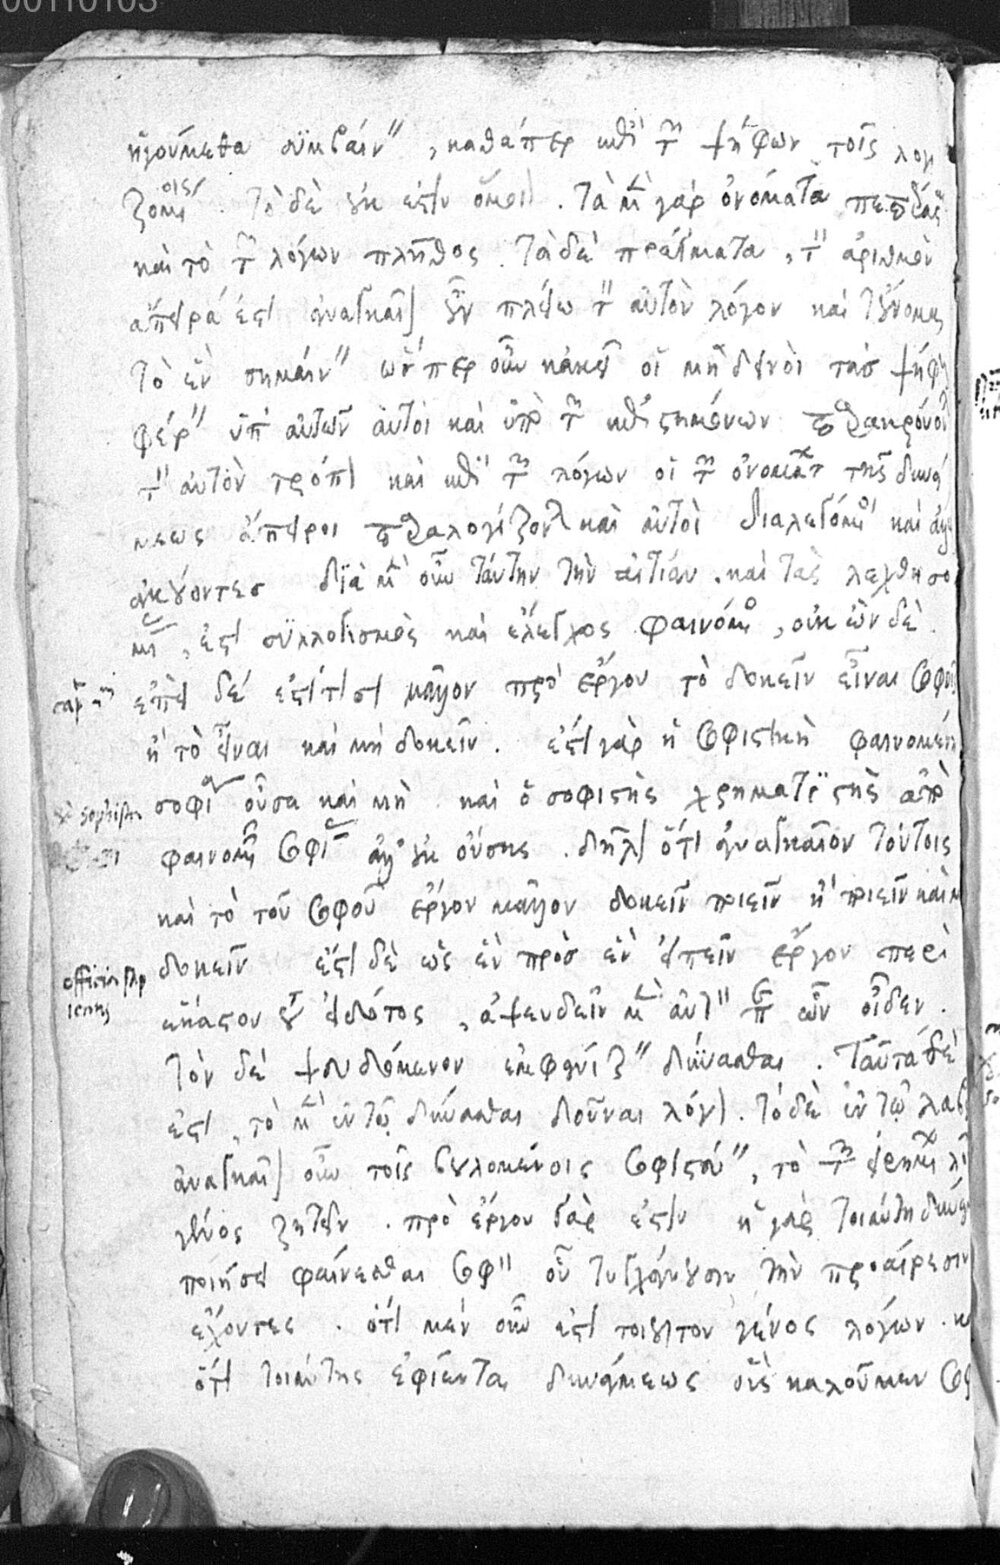 00110103
ἡγούμεθα συμβαίν", καθάπερ κθ' τ ψήφων τοῖς λογι
ζομοις. Τὸ δὲ ουκ εστιν ὅμοι). Τὰ μ γὰρ ὀνόματα πεπαρας
καὶ τὸ τ λόγων πλῆθος. Τὰ δὲ πράγματα, τ ἀριθμὸν
ἄπειρά ἐστι ἀναγκαῖ) οὖν πλείω τ αὐτὸν λόγον καὶ τοὔνομα
τὸ ἓν σημαίν" ὥσπερ οὖν κακει οἱ μὴ δεινοὶ τὰσ ψήφ
φέρ" ὑπ' αὐτῶν αὐτοὶ καὶ ὑπὸ τ
τ αὐτὸν τρόπ) καὶ κθ' τ λόγων οἱ τ ὀνομάτ τῆς δυνά
μεως ἄπειροι παραλογίζοντ καὶ αὐτοὶ διαλεγόμ καὶ ἀλλ
ἀκούοντεσ διὰ μ οὖν ταύτην τὴν αἰτίαν. καὶ τὰς λεχθησο
μ, ἐστι συλλογισμὸς καὶ ἔλεγχος φαινόμ, οὐκ ὢν δὲ.
ἐπεὶ δέ ἐστί τισι μᾶλλον πρὸ ἔργου τὸ δοκεῖν εἶναι σοφ
ἢ τὸ εἶναι καὶ μὴ δοκεῖν. ἔστι γὰρ ἡ σοφιστικὴ φαινομέν
σοφία οὖσα καὶ μὴ. καὶ ὁ σοφιστὴς χρηματιστὴς ἀπὸ
φαινομ σοφι ἀλλ' ουκ οὔσης. δῆλ) ὅτι ἀναγκαῖον τούτοις
καὶ τὸ τοῦ σοφοῦ ἔργον μᾶλλον δοκεῖν ποιεῖν ἢ ποιεῖν καὶ μ
δοκεῖν ἔστι δὲ ὡς ἓν πρὸσ ἓν εἰπεῖν ἔργον περὶ
ἕκαστον τ εἰδότος, ἀψευδεῖν μ αὐτ" π ὧν οἶδεν.
τὸν δὲ ψευδόμενον ἐμφανίζ" δύνασθαι. Ταῦτα δὲ
ἐστι, τὸ μ ἐν τῷ δύνασθαι δοῦναι λόγ). τὸ δὲ ἐν τῷ λαβ
ἀναγκαῖ) οὖν τοῖς βουλομένοις σοφιστεύ", τὸ τ εἰρημ λ
γένος ζητεῖν. πρὸ ἔργου γάρ ἐστιν ἡ γὰρ τοιαύτη δύναμ
ποιήσει φαίνεσθαι σοφ" οὗ τυγχάνουσιν τὴν προαίρεσιν
ἔχοντες. ὅτι μὲν οὖν ἐστι τοιουτον γένος λόγων. κ
ὅτι τοιαύτης ἐφίενται δυνάμεως οὓς καλοῦμεν σοφ